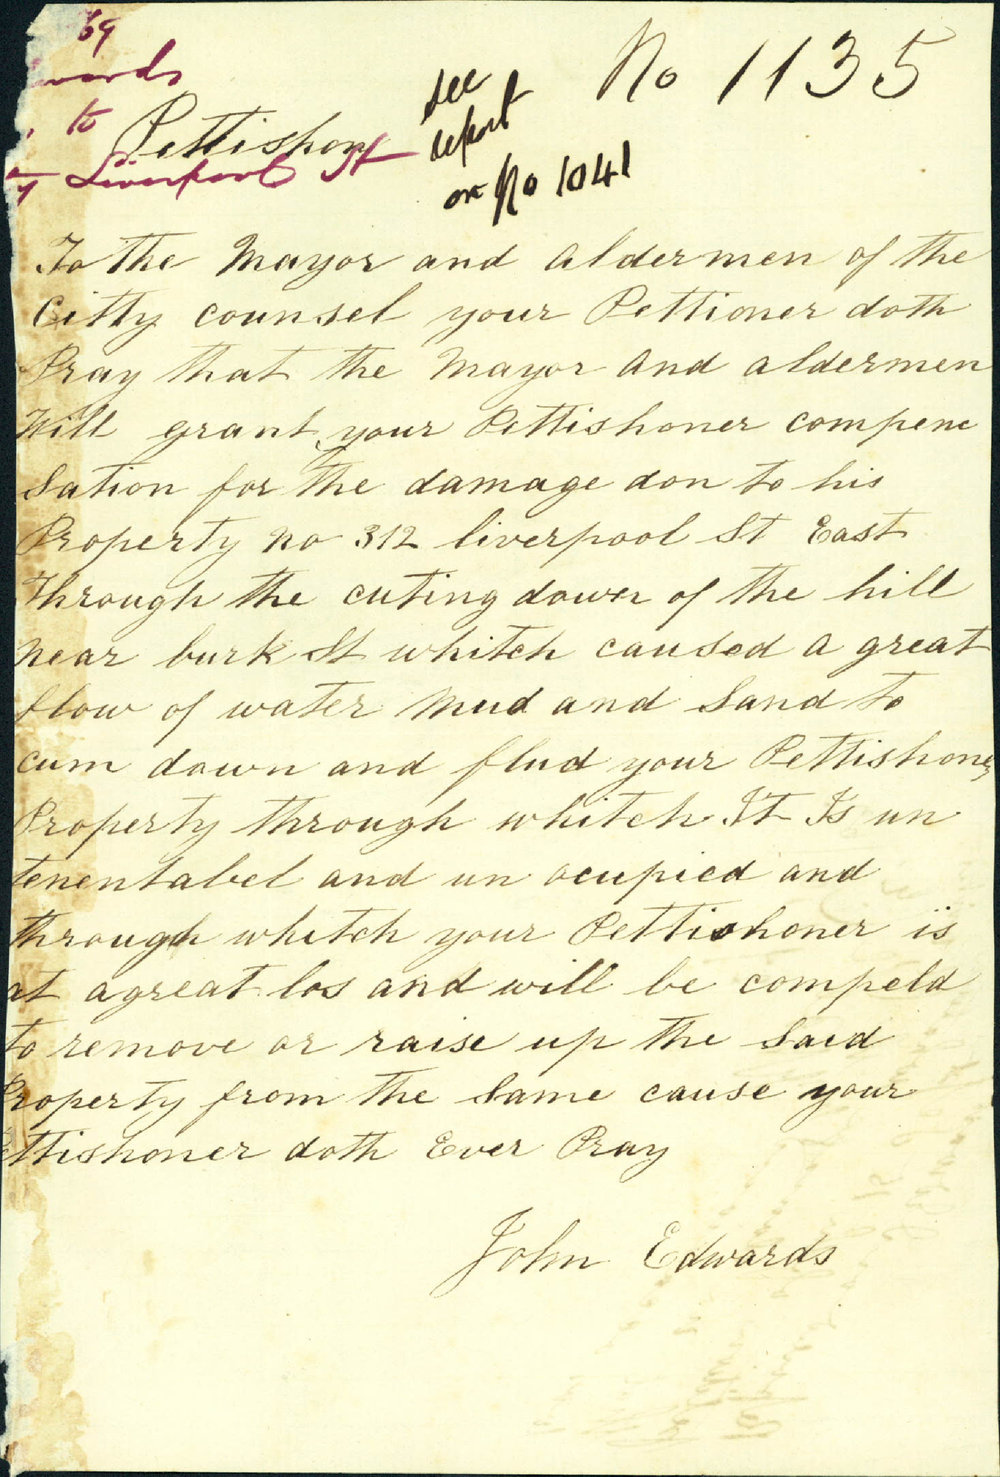 69
wards
No 1135
to
Pettishon
see
report
on No 1041
Liverpool St
To the Mayor and aldermen of the
Citty counsel your Pettioner doth
Pray that the Mayor and aldermen
Will grant your Pettishoner compenc
sation for the damage don to his
Property No 312 liverpool St East
Through the cuting down of the hill
Near burk St whitch caused a great
flow of water Mud and Sand to
cum down and flud your Pettishoner
Property through whitch It Is un
tenentabel and un ocupied and
through whitch your Pettishoner is
at a great los and will be compeld
to remove or raise up the said
Property from the same cause your
Pettishoner doth Ever Pray
John Edwards